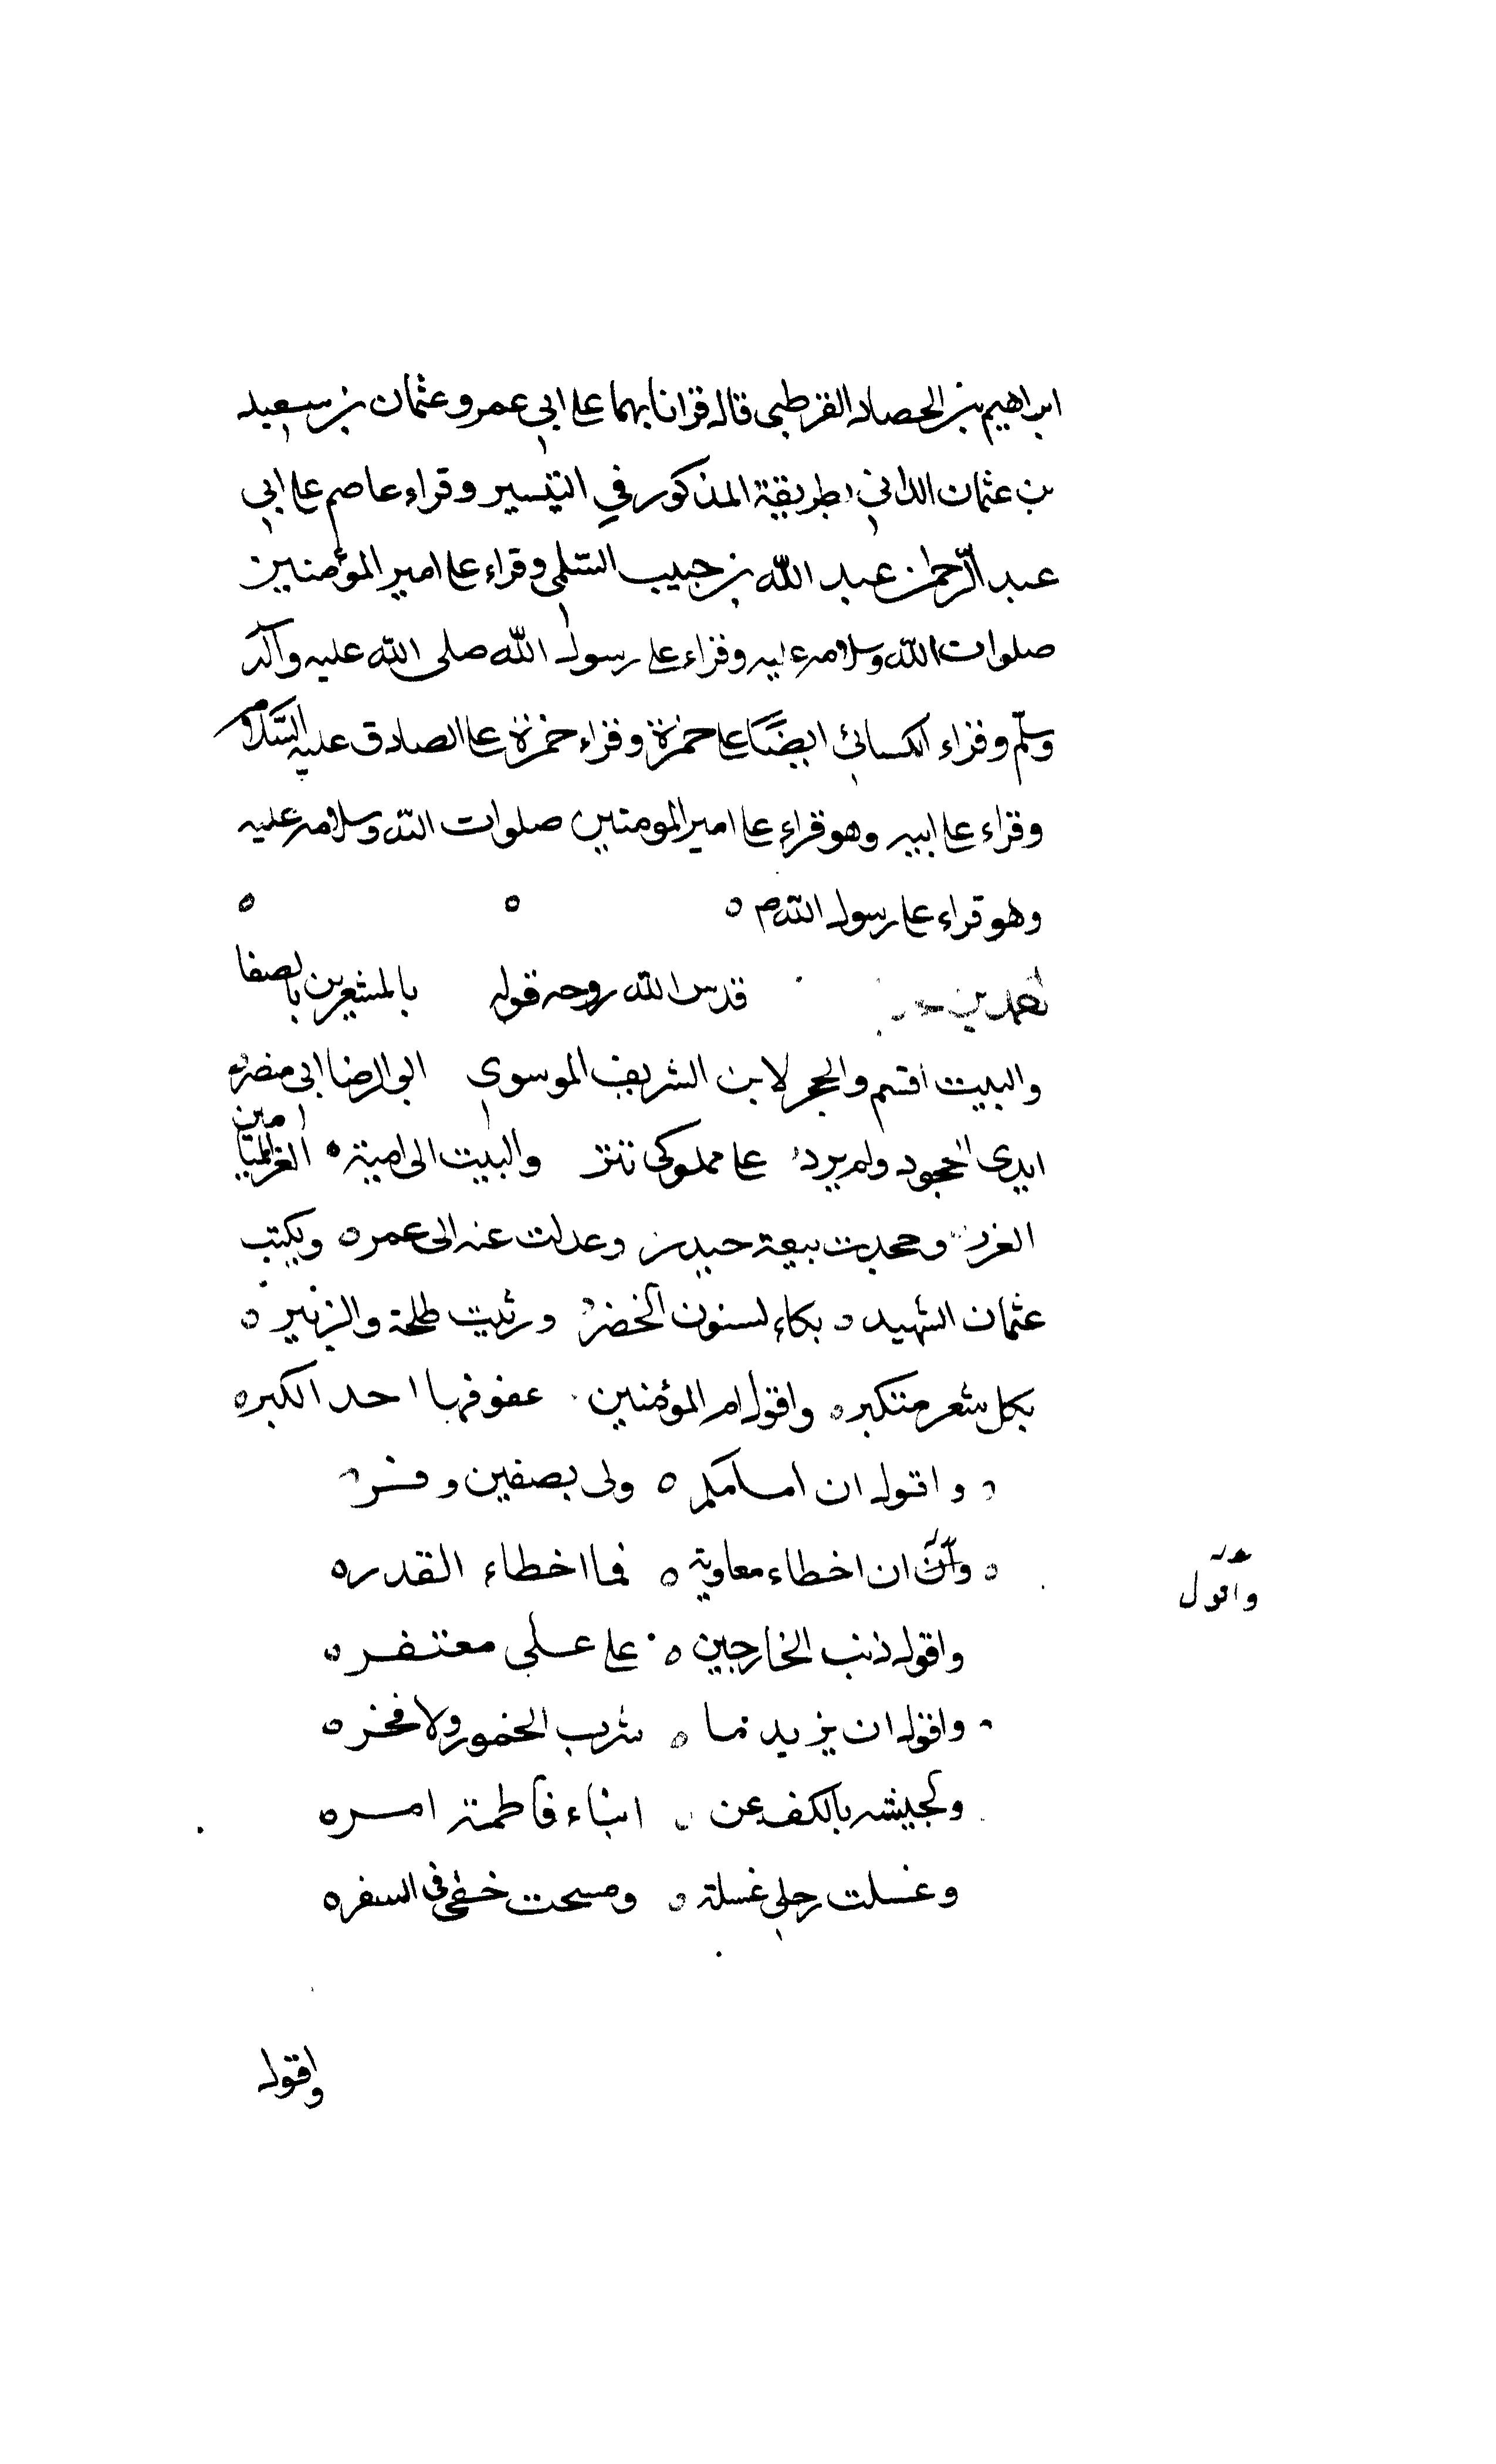 ابراهيم بن الحصاد القرطبى قال قرانا بهما على ابي عمرو عثمان بن سعيد
بن عثمان الدانى بطريقة المذكور في التيسير وقراء عاصم على ابي
عبد الرّحمان عبد الله بن حبيب السّلمي وقراء على امير المؤمنين
صلوات الله وسلامه عليه وقراء على رسول الله صلى الله عليه وآله
وسلّم وقراء الكسائي ايضًا على حمزة وقراء حمزة على الصادق عليه السّلام
وقراء على ابيه وهو قراء على امير المومنين صلوات الله وسلامه عليه
وهو قراء على رسول الله م ه ه ه
قدس الله روحه قوله بالمشعرين بالصفا
والبيت اقسم والحجر لابن الشريف الموسوى ابو الرضا ابى مضره
ابدى الجحود ولم يرد على مملوكى تتر والبيت الى امية الغر الميامين
الغرر وجحدت بيعة حيدر وعدلت عنه الى عمره وبكيت
عثمان الشهيد ه بكاء لسنون الحضر ورثيت طلحة والزبير ه
بكل شعر متكبره واقول ام المؤمنين عفوقها احد الكبره
واقول ان امامكم ه ولى بصفين وفر
ه ان اخطاء معاوية ه فما اخطاء القدره
واقول
واقول ذنب الخارجين ه على على معتفره
واقول ان يزيد ما ه شرب الخمور ولا فخره
ولجيشه بالكف عن ه ابناء فاطمة امره
وغسلت رجلى غسلة ه ومسحت خفى فى السفره
واقول